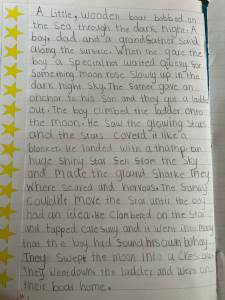 A little, wooden boat bobbed on
the sea through the dark night. A
boy, dad and a grandfather sand
along the surface. When the gave the
boy a special hat waited quiley for
Something moon rose slowly up in the
dark night sky. The Father gave an
anchor to his son and they got a ladder
out. The boy climbed the ladder onto
the moon. He saw the growing stars
and the stars coverd it like a
blanket. He landed with a thamp. an
huge shiny Star fell from the Sky
and made the ground shake They
where scared and nervous. The family
couldnt move the Star until the boy
had an idea. He clambered on the Star
and tapped carefully and it went into many
that the boy had found his own whay.
They swept the moon into a cresent
They went down the ladder and went on
their boat home.